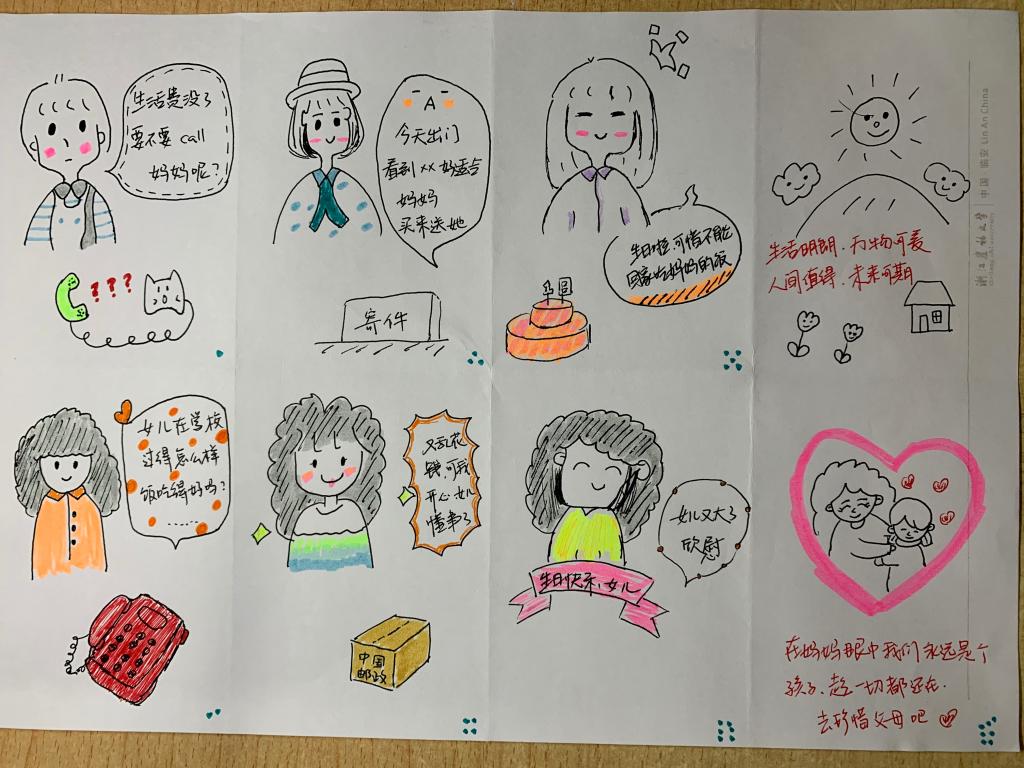 生活费没了
要不要 call
妈妈呢?
???
今天出门
看到 ×× 好适合
妈妈
买来送她
寄件
生日啦,可惜不能
回家吃妈妈的饭
生活明朗,万物可爱
人间值得,未来可期
中国·临安 Lin An China
女儿在学校
过得怎么样
饭吃得好吗?
......
又乱花
钱,可我
开心,女儿
懂事了
中国
邮政
女儿又大了
欣慰
生日快乐,女儿
在妈妈眼中我们永远是个
孩子,趁一切都还在.
去珍惜父母吧